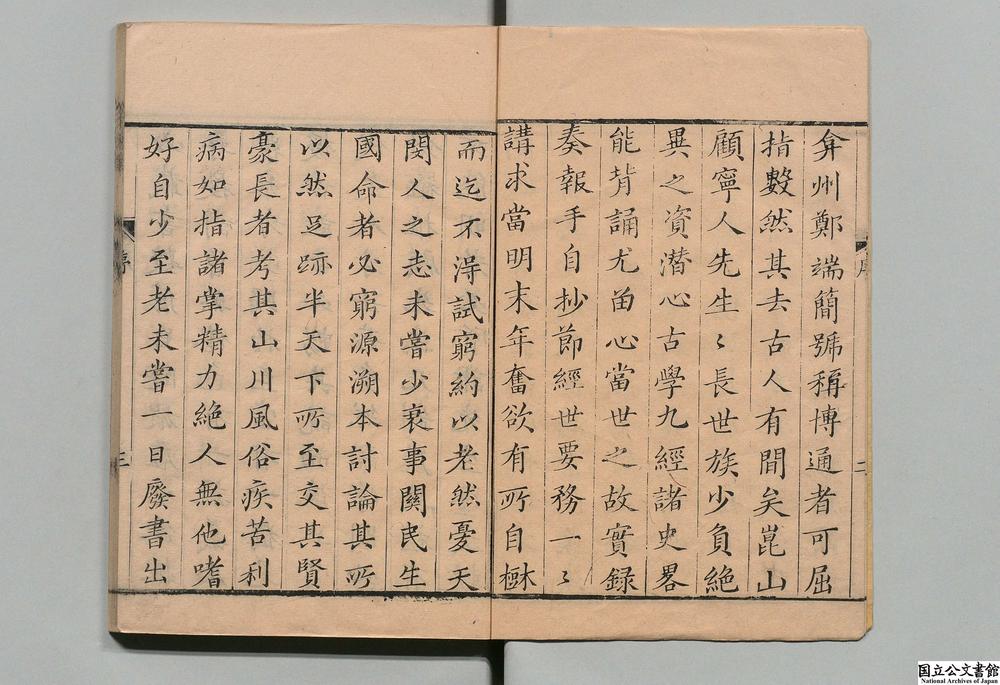 弇州鄭端簡號稱博通者可屈
指數然其去古人有間矣崑山
顧寧人先生〻長世族少負絶
異之資潛心古學九經諸史畧
能背誦尤畱心當世之故實録
奏報手自抄節經世要務一〻
講求當明末年奮欲有所自樹
而迄不淂試窮約以老然憂天
閔人之志未嘗少衰事關民生
國命者必窮源溯本討論其所
以然足跡半天下所至交其賢
豪長者考其山川風俗疾苦利
病如指諸掌精力絶人無他嗜
好自少至老未嘗一日廢書出
序
二
序
三
国立公文書館
National Archives of Japan